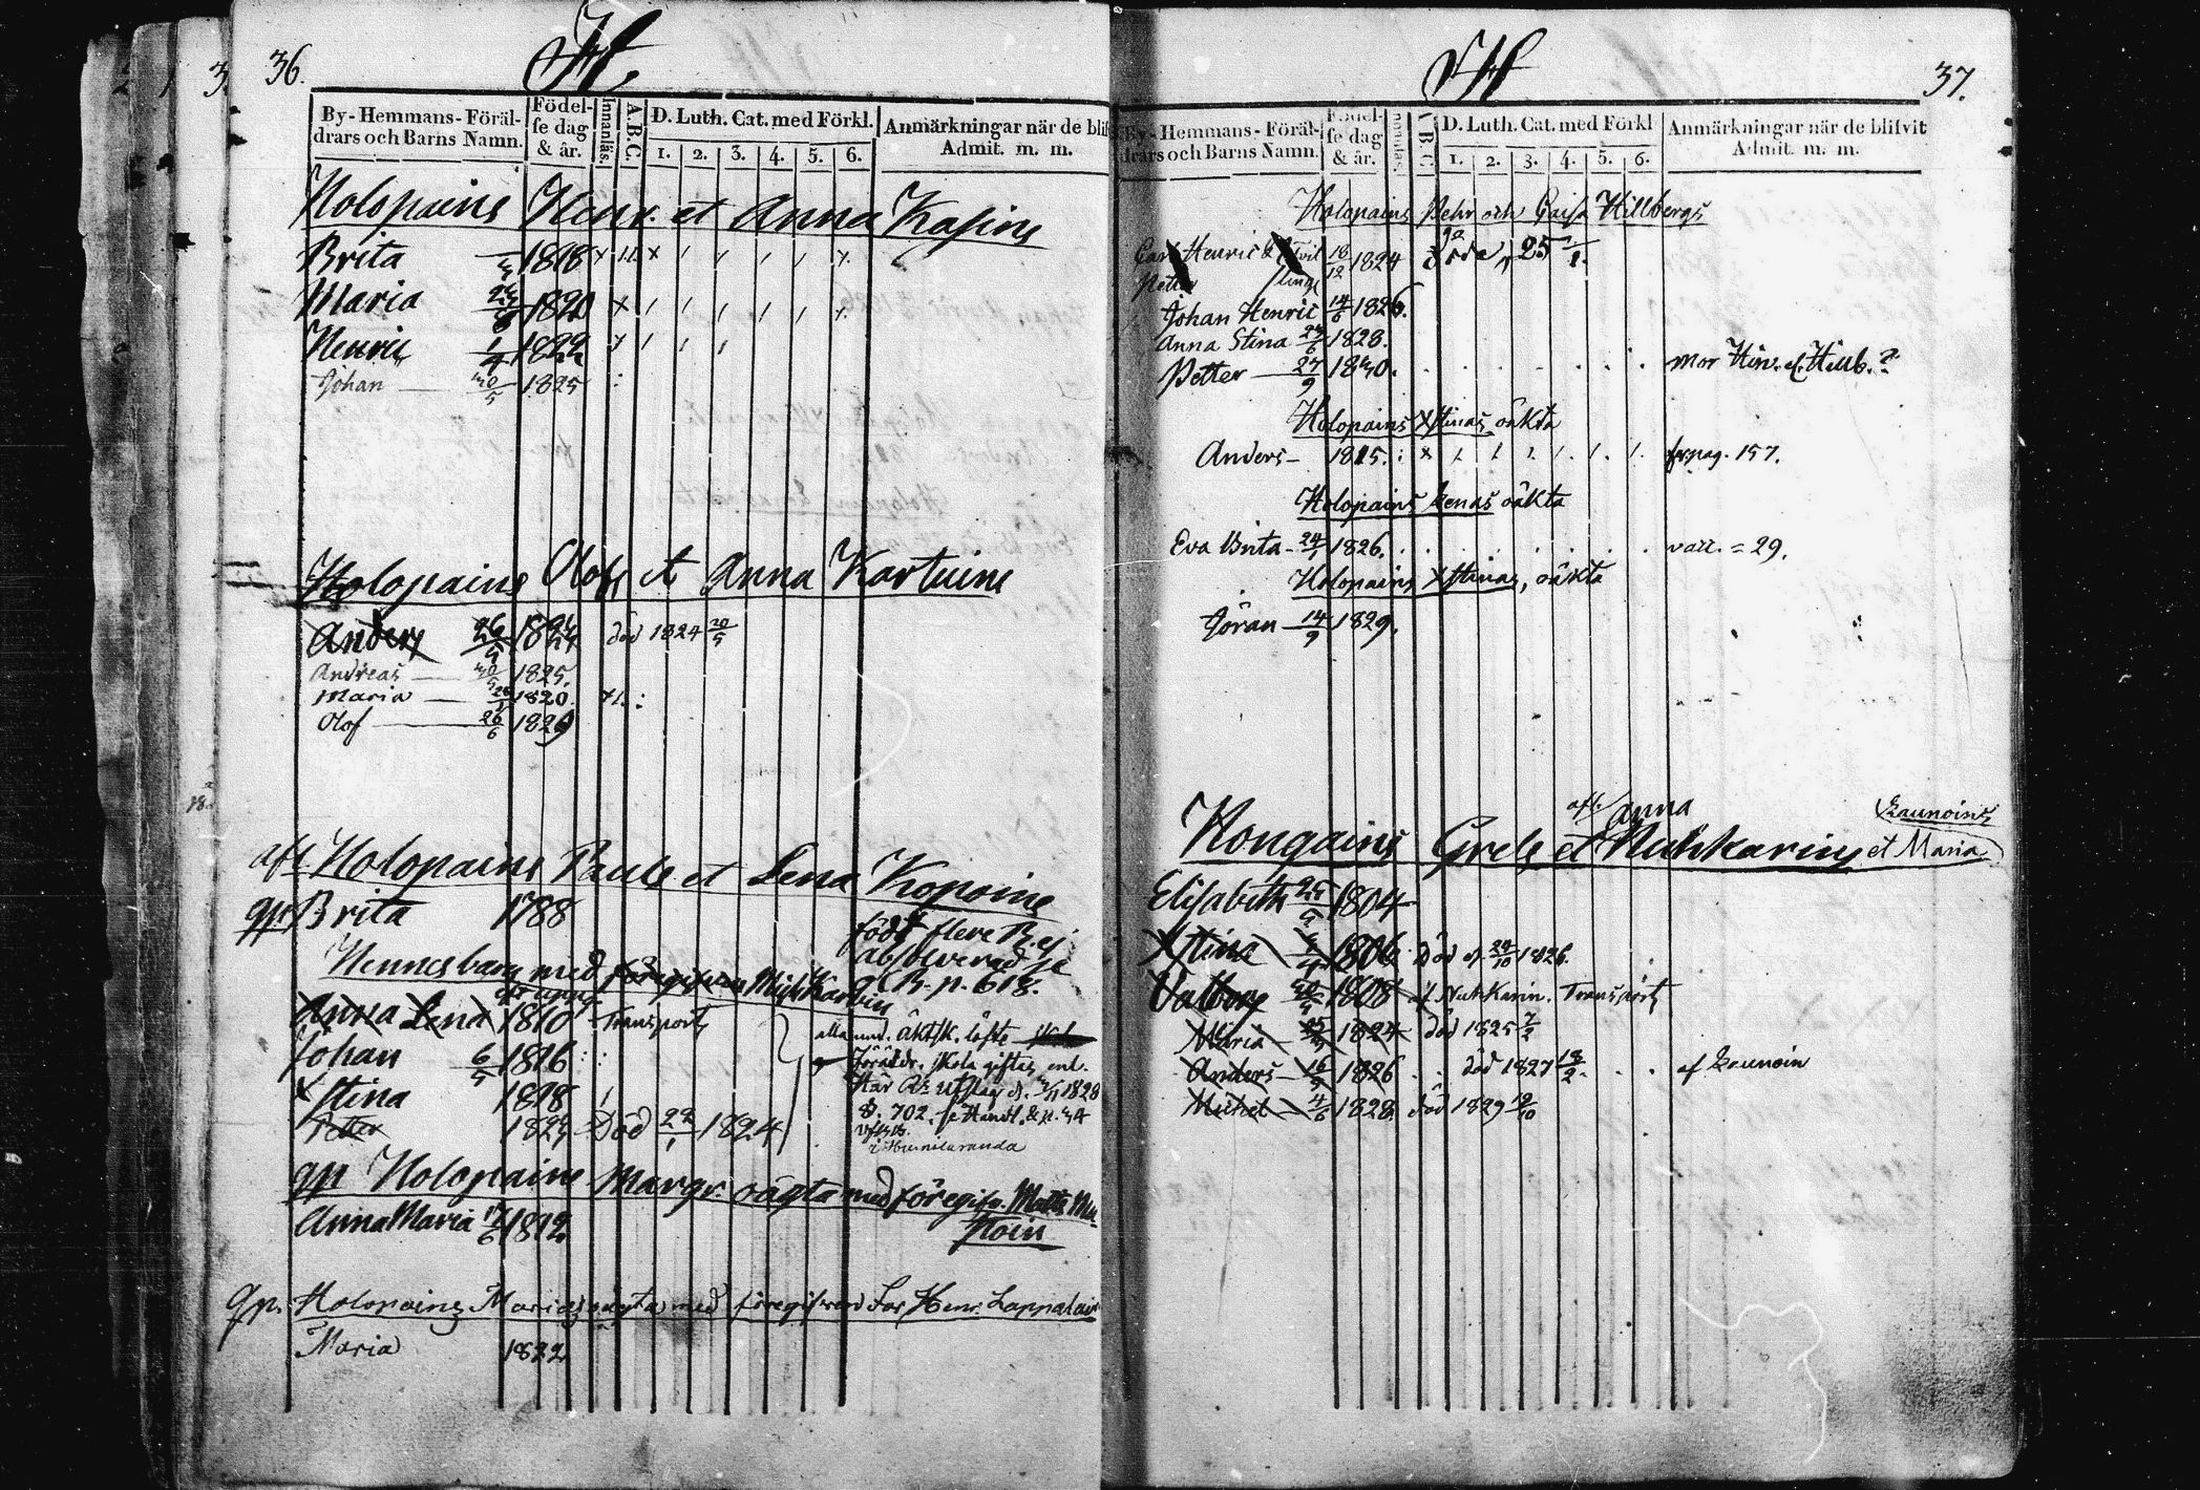 36.
H
By-Hemmans-Föräl-
drars och Barns Namn.
Födel-
se dag
& år.
Innanläs.
A.B.C.
D. Luth. Cat. med Förkl.
1. 2. 3. 4. 5. 6.
Anmärkningar när de blif
Admit. m. m.
Holopains Henr. et Anna Kasins
Brita 1818
Maria 1820
Henric 1822
Johan 30/5 1825
Holopains Olofs et Anna Kartuins
Anders 1824 död 1824 20/5
Andreas 30/5 1825.
Maria 1820
Olof 26/6 1829
afl. Holopains Pauls et Lena Kopoins
gp. Brita 1788
födt flere B. ej
absolverad se
R. p. 618.
Hennes barn med föregifven Mich Karvin
Anna Lena 1810 Transport
Johan 6/5 1816
Xstina 1818
Petter Död 22/1 1824
gp Holopains Margr. oägta med föregifv. Matts Mu
stoin
Anna Maria 17/6 1812
gp. Holopains Marias oägta med föregifven Far Henr. Lappalain
Maria 1822
37.
H
By-Hemmans-Föräl-
drars och Barns Namn.
Födel-
se dag
& år.
A B C
D. Luth. Cat. med Förkl
1. 2. 3. 4. 5. 6.
Anmärkningar när de blifvit
Admit. m. m.
Holopains Pehr och Caisa Hillbergs
Carl Henric & Tvil 18/12 1824 döde 25
Petter lingr
Johan Henric 14/6 1826.
Anna Stina 1828.
Petter 27/9 1830.
Holopains Xstinas oäkta
Anders 1815. fr. pag. 157.
Holopains Lenas oäkta
Eva Brita 24/1 1826. vacc. = 29.
Holopains Xstinas, oäkta
Göran 14/9 1829.
afl. Anna
Hongains Grels et Nuhkarins et Maria
Kaunoins
Elisabeth 25/5 1804
Xstina 1806 död 24/10 1826.
Valborg 1808 af Nuhkarin. Transport
Maria 1824 död 1825 7/2
Anders 1826 död 1827 18/2 af Kaunoin
Michel 4/6 1828 död 1829 12/10